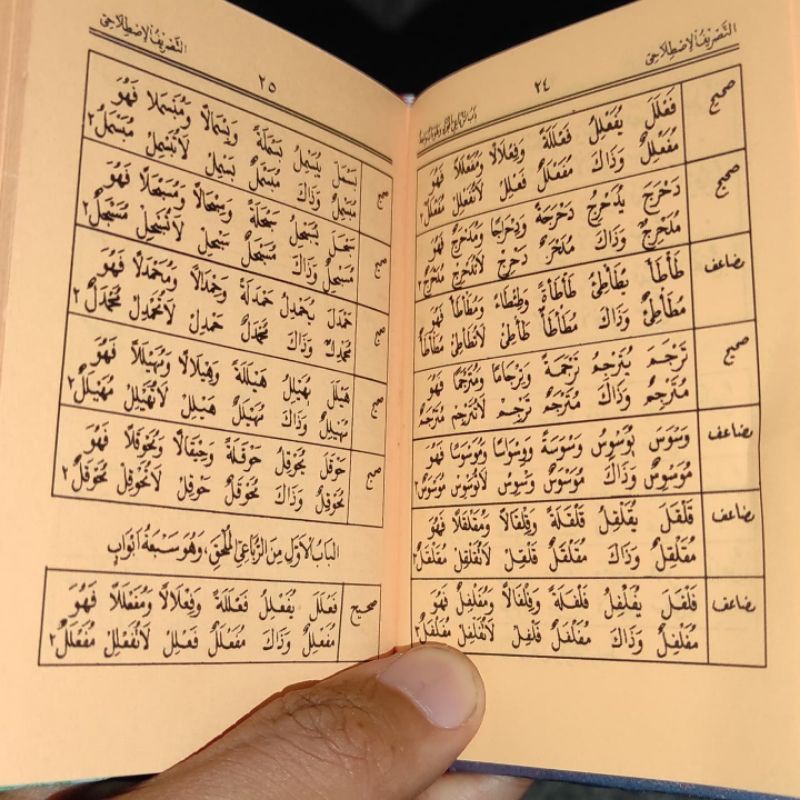 التَّصْرِيفُ الْإِصْطِلَاحِيُّ
٢٤
صحيح
فَعْلَلَ يُفَعْلِلُ فَعْلَلَةً وَفِعْلَالًا وَمُفَعْلَلًا فَهُوَ
مُفَعْلِلٌ وَذَاكَ مُفَعْلَلٌ فَعْلِلْ لَاتُفَعْلِلْ مُفَعْلَلٌ ٢
صحيح
دَحْرَجَ يُدَحْرِجُ دَحْرَجَةً وَدِحْرَاجًا وَمُدَحْرَجًا فَهُوَ
مُدَحْرِجٌ وَذَاكَ مُدَحْرَجٌ دَحْرِجْ لَاتُدَحْرِجْ مُدَحْرَجٌ ٢
مضاعف
طَأْطَأَ يُطَأْطِئُ طَأْطَأَةً وَطِئْطَاءً وَمُطَأْطَأً فَهُوَ
مُطَأْطِئٌ وَذَاكَ مُطَأْطَأٌ طَأْطِئْ لَاتُطَأْطِئْ مُطَأْطَأٌ
صحيح
تَرْجَمَ يُتَرْجِمُ تَرْجَمَةً وَتِرْجَامًا وَمُتَرْجَمًا فَهُوَ
مُتَرْجِمٌ وَذَاكَ مُتَرْجَمٌ تَرْجِمْ لَاتُتَرْجِمْ مُتَرْجَمٌ
مضاعف
وَسْوَسَ يُوَسْوِسُ وَسْوَسَةً وَوِسْوَاسًا وَمُوَسْوَسًا فَهُوَ
مُوَسْوِسٌ وَذَاكَ مُوَسْوَسٌ وَسْوِسْ لَاتُوَسْوِسْ مُوَسْوَسٌ ٢
مضاعف
قَلْقَلَ يُقَلْقِلُ قَلْقَلَةً وَقِلْقَالًا وَمُقَلْقَلًا فَهُوَ
مُقَلْقِلٌ وَذَاكَ مُقَلْقَلٌ قَلْقِلْ لَاتُقَلْقِلْ مُقَلْقَلٌ ٢
مضاعف
فَلْفَلَ يُفَلْفِلُ فَلْفَلَةً وَفِلْفَالًا وَمُفَلْفَلًا فَهُوَ
مُفَلْفِلٌ وَذَاكَ مُفَلْفَلٌ فَلْفِلْ لَاتُفَلْفِلْ مُفَلْفَلٌ ٢
التَّصْرِيفُ الْإِصْطِلَاحِيُّ
٢٥
صحيح
بَسْمَلَ يُبَسْمِلُ بَسْمَلَةً وَبِسْمَالًا وَمُبَسْمَلًا فَهُوَ
مُبَسْمِلٌ وَذَاكَ مُبَسْمَلٌ بَسْمِلْ لَاتُبَسْمِلْ مُبَسْمَلٌ ٢
صحيح
سَبْحَلَ يُسَبْحِلُ سَبْحَلَةً وَسِبْحَالًا وَمُسَبْحَلًا فَهُوَ
مُسَبْحِلٌ وَذَاكَ مُسَبْحَلٌ سَبْحِلْ لَاتُسَبْحِلْ مُسَبْحَلٌ ٢
صحيح
حَمْدَلَ يُحَمْدِلُ حَمْدَلَةً وَحِمْدَالًا وَمُحَمْدَلًا فَهُوَ
مُحَمْدِلٌ وَذَاكَ مُحَمْدَلٌ حَمْدِلْ لَاتُحَمْدِلْ مُحَمْدَلٌ ٢
صحيح
هَيْلَلَ يُهَيْلِلُ هَيْلَلَةً وَهِيلَالًا وَمُهَيْلَلًا فَهُوَ
مُهَيْلِلٌ وَذَاكَ مُهَيْلَلٌ هَيْلِلْ لَاتُهَيْلِلْ مُهَيْلَلٌ ٢
صحيح
حَوْقَلَ يُحَوْقِلُ حَوْقَلَةً وَحِيْقَالًا وَمُحَوْقَلًا فَهُوَ
مُحَوْقِلٌ وَذَاكَ مُحَوْقَلٌ حَوْقِلْ لَاتُحَوْقِلْ مُحَوْقَلٌ ٢
اَلْبَابُ الْأَوَّلُ مِنَ الرُّبَاعِيِّ الْمُلْحَقِ، وَهُوَ سَبْعَةُ أَبْوَابٍ
صحيح
فَعْلَلَ يُفَعْلِلُ فَعْلَلَةً وَفِعْلَالًا وَمُفَعْلَلًا فَهُوَ
مُفَعْلِلٌ وَذَاكَ مُفَعْلَلٌ فَعْلِلْ لَاتُفَعْلِلْ مُفَعْلَلٌ ٢